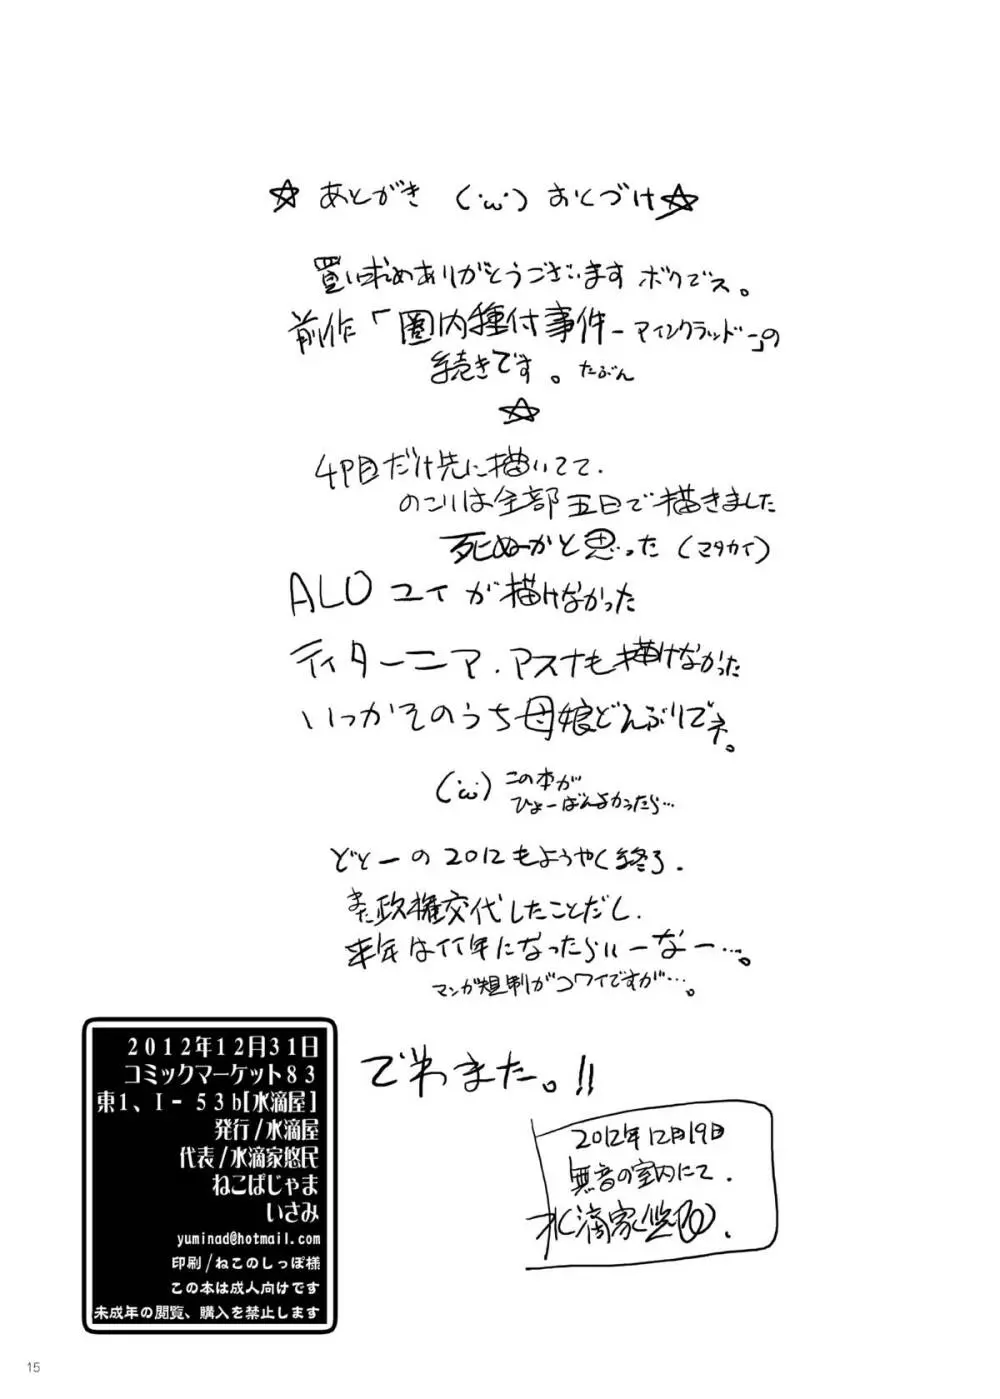 ☆ あとがき (・ω・) おくづけ☆
買い求めありがとうございます ボクデス。
前作「圏内種付事件-アインクラッド-」の
続きです。たぶん
☆
4P目だけ先に描いてて、
のこりは全部五日で描きました
死ぬかと思った(マタカイ)
ALO ユイが描けなかった
ティターニア、アスナも描けなかった
いつかそのうち母娘どんぶりでネ。
(・ω・) この本が
ひょーばんよかったら…
どとーの2012もようやく終了、
また政権交代したことだし、
来年はいい年になったらいーなー…。
マンガ規制がコワイですが…。
でわまた。!!
2012年12月19日
無音の室内にて、
水滴家悠民
2012年12月31日
コミックマーケット83
東1、I- 53b[水滴屋]
発行/水滴屋
代表/水滴家悠民
ねこぱじゃま
いさみ
yuminad@hotmail.com
印刷/ねこのしっぽ様
この本は成人向けです
未成年の閲覧、購入を禁止します
15